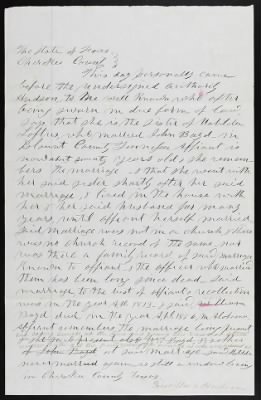 The State of Texas
Cherokee County
This day personally came
before the undersigned authority
Hudson, to me well known who after
being sworn in due form of Law
Says that she is the Sister of
who married John Boyd in
Blount County Tennessee Affiant is
now about years old she remem
bers the marriage & that she went with
her said sister shortly after her said
marriage, & lived in the house with
her & her said husband for many
years, until affiant herself married
Said marriage was not in a church & there
was no church record of the same, nor
was there a family record of said marriage
Known to affiant, the officer who married
them has been long since dead. Said
marriage to the best of affiants recollection
was in the year AD 1813. & said
Boyd died in the year AD in Alabama
Affiant remembers the marriage being
& she was present also Brother
of John Boyd at said marriage said
never married again & still a widow living
in Cherokee County Texas.